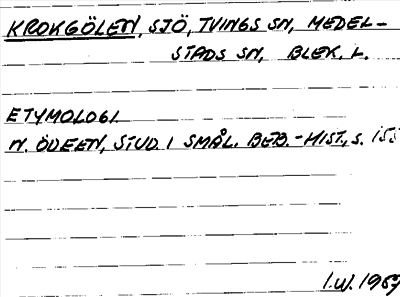 KROKGÖLEN, SJÖ, TVINGS SN, MEDEL-
STADS SN, BLEK. L.
ETYMOLOGI.
N. ÖDEEN, STUD. I SMÅL. BEB.-HIST., S. 155
I.W. 1969